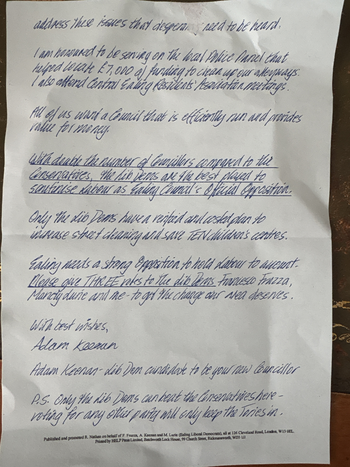 address these issues that desperately need to be heard.
I am honoured to be serving on the local Police Panel that
helped locate £7,000 of funding to clean up our alleyways.
I also attend Central Ealing Residents Association meetings.
All of us want a Council that is efficiently run and provides
value for money.
With double the number of Councillors compared to the
Conservatives, the Lib Dems are the best placed to
scrutinise Labour as Ealing Council's Official Opposition.
Only the Lib Dems have a costed plan to
increase street cleaning and save TEN children's centres.
Ealing needs a strong Opposition to hold Labour to account.
Please give THREE votes to the Lib Dems, Francesco Fruzza,
and me - to get the change our area deserves.
With best wishes,
Adam Keenan
Adam Keenan - Lib Dem candidate to be your new Councillor
P.S. Only the Lib Dems can beat the Conservatives here -
voting for any other party will only keep the Tories in.
Published and promoted by on behalf of F. Fruzza, A. Keenan and M. (Ealing Liberal Democrats), all at 126 Cleveland Road, London, W13 0EL.
Printed by MHLP Print Limited, Beechwood Lock House, 99 Church Street, Rickmansworth, WD3 1JJ